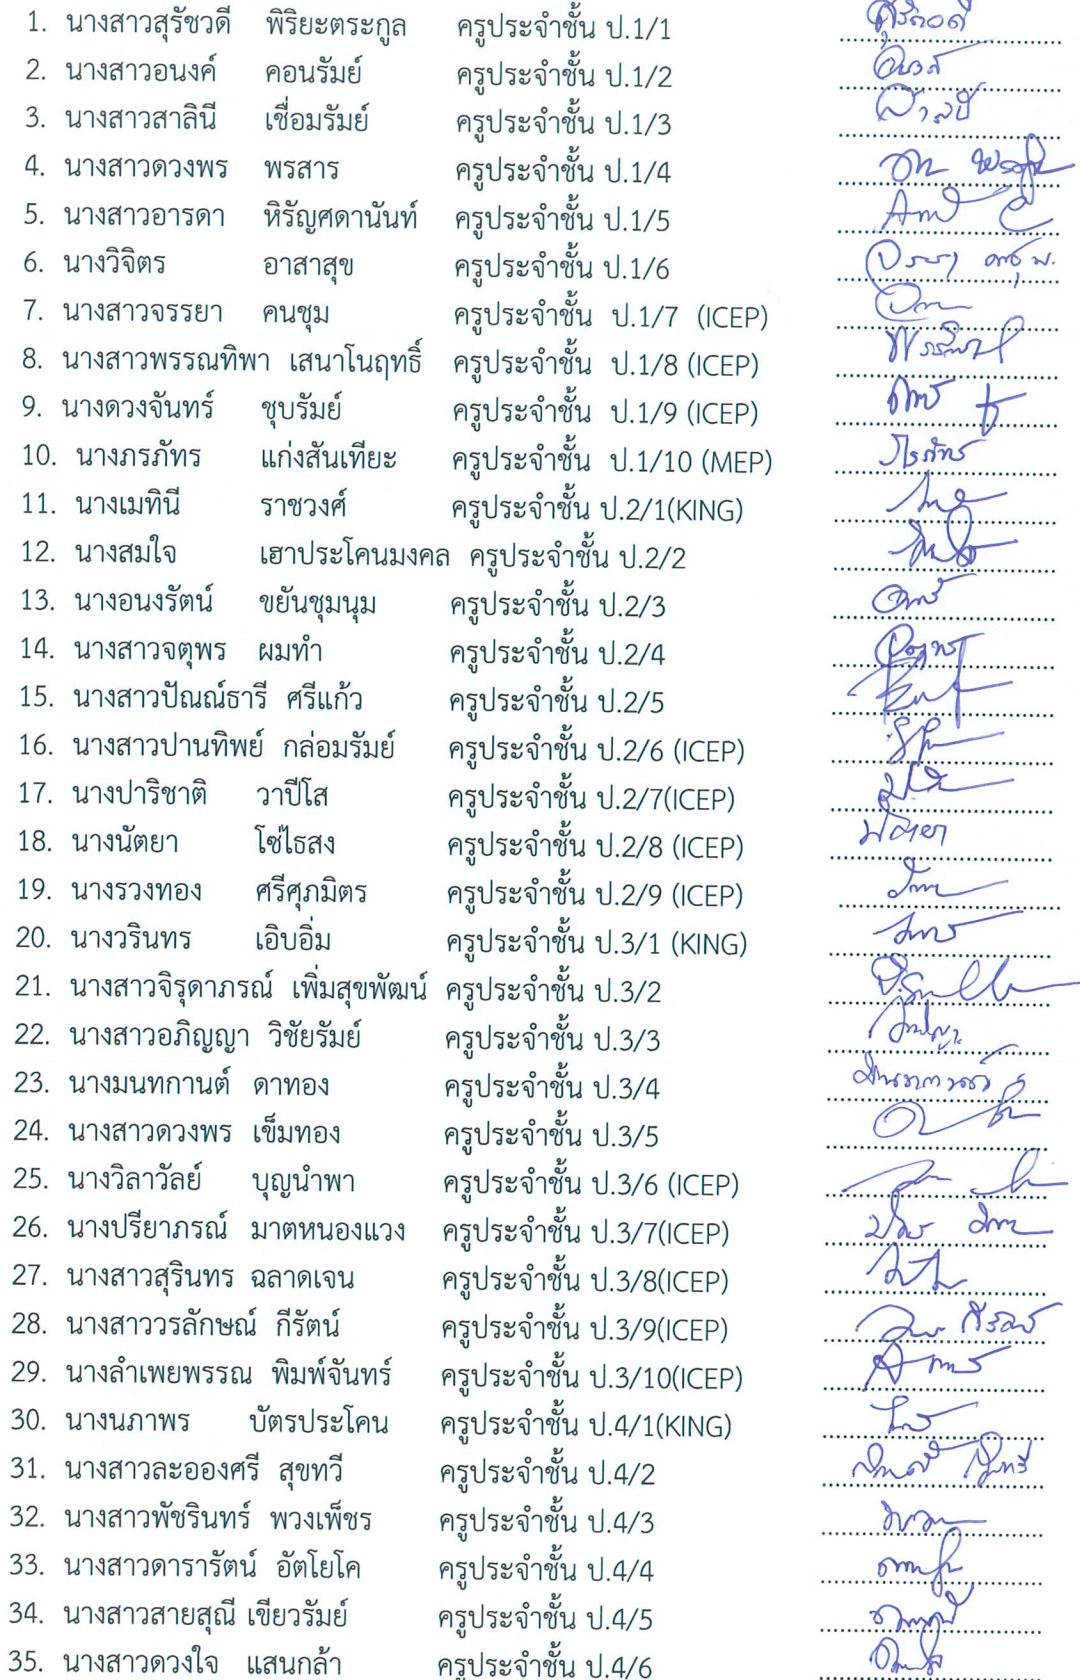 1. นางสาวสุรัชวดี พิริยะตระกูล ครูประจำชั้น ป.1/1
2. นางสาวอนงค์ คอนรัมย์ ครูประจำชั้น ป.1/2
3. นางสาวสาลินี เชื่อมรัมย์ ครูประจำชั้น ป.1/3
4. นางสาวดวงพร พรสาร ครูประจำชั้น ป.1/4
5. นางสาวอารดา หิรัญศดานันท์ ครูประจำชั้น ป.1/5
6. นางวิจิตร อาสาสุข ครูประจำชั้น ป.1/6
7. นางสาวจรรยา คนชุม ครูประจำชั้น ป.1/7 (ICEP)
8. นางสาวพรรณทิพา เสนาโนฤทธิ์ ครูประจำชั้น ป.1/8 (ICEP)
9. นางดวงจันทร์ ชุบรัมย์ ครูประจำชั้น ป.1/9 (ICEP)
10. นางภรภัทร แก่งสันเทียะ ครูประจำชั้น ป.1/10 (MEP)
11. นางเมทินี ราชวงศ์ ครูประจำชั้น ป.2/1(KING)
12. นางสมใจ เฮาประโคนมงคล ครูประจำชั้น ป.2/2
13. นางอนงรัตน์ ขยันชุมนุม ครูประจำชั้น ป.2/3
14. นางสาวจตุพร ผมทำ ครูประจำชั้น ป.2/4
15. นางสาวปัณณ์ธารี ศรีแก้ว ครูประจำชั้น ป.2/5
16. นางสาวปานทิพย์ กล่อมรัมย์ ครูประจำชั้น ป.2/6 (ICEP)
17. นางปาริชาติ วาปีโส ครูประจำชั้น ป.2/7(ICEP)
18. นางนัตยา โซ่ไธสง ครูประจำชั้น ป.2/8 (ICEP)
19. นางรวงทอง ศรีศุภมิตร ครูประจำชั้น ป.2/9 (ICEP)
20. นางวรินทร เอิบอิ่ม ครูประจำชั้น ป.3/1 (KING)
21. นางสาวจิรุดาภรณ์ เพิ่มสุขพัฒน์ ครูประจำชั้น ป.3/2
22. นางสาวอภิญญา วิชัยรัมย์ ครูประจำชั้น ป.3/3
23. นางมนทกานต์ ดาทอง ครูประจำชั้น ป.3/4
24. นางสาวดวงพร เข็มทอง ครูประจำชั้น ป.3/5
25. นางวิลาวัลย์ บุญนำพา ครูประจำชั้น ป.3/6 (ICEP)
26. นางปรียาภรณ์ มาตหนองแวง ครูประจำชั้น ป.3/7(ICEP)
27. นางสาวสุรินทร ฉลาดเจน ครูประจำชั้น ป.3/8(ICEP)
28. นางสาววรลักษณ์ กีรัตน์ ครูประจำชั้น ป.3/9(ICEP)
29. นางลำเพยพรรณ พิมพ์จันทร์ ครูประจำชั้น ป.3/10(ICEP)
30. นางนภาพร บัตรประโคน ครูประจำชั้น ป.4/1(KING)
31. นางสาวละอองศรี สุขทวี ครูประจำชั้น ป.4/2
32. นางสาวพัชรินทร์ พวงเพ็ชร ครูประจำชั้น ป.4/3
33. นางสาวดารารัตน์ อัตโยโค ครูประจำชั้น ป.4/4
34. นางสาวสายสุณี เขียวรัมย์ ครูประจำชั้น ป.4/5
35. นางสาวดวงใจ แสนกล้า ครูประจำชั้น ป.4/6